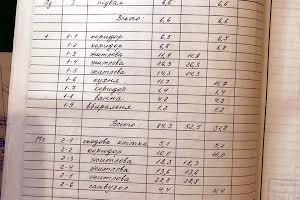 Пд 3 підвал 6,6 6,6
Всього: 6,6 6,6
1 1-1 коридор 6,5 6,5
1-2 коридор 6,8 6,8
1-3 житлова 11,8 11,8
1-4 житлова 26,3 26,3
1-5 житлова 14,3 14,3
1-6 кухня 11,7
1-7 коридор 1,4
1-8 ванна 4,2
1-9 вбиральня 1,2
Всього: 84,3 52,5
2-1 сходова клітка 5,1 5,1
2-2 коридор 10,0 10,0
2-3 житлова 18,3 18,3
2-4 житлова 13,6 13,6
2-5 житлова 28,8
2-6 санвузол 4,4 4,4